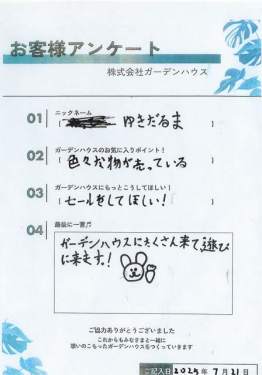 お客様アンケート
株式会社ガーデンハウス
01 ニックネーム
[ ゆきだるま ]
02 ガーデンハウスのお気に入りポイント！
[ 色々な物が売っている ]
03 ガーデンハウスにもっとこうしてほしい！
[ セールをしてほしい！ ]
04 最後に一言♬
ガーデンハウスにたくさん来て遊び
に来ます！
ご協力ありがとうございました
これからもみなさまと一緒に
想いのこもったガーデンハウスをつくっていきます
ご記入日 2025年 7月21日